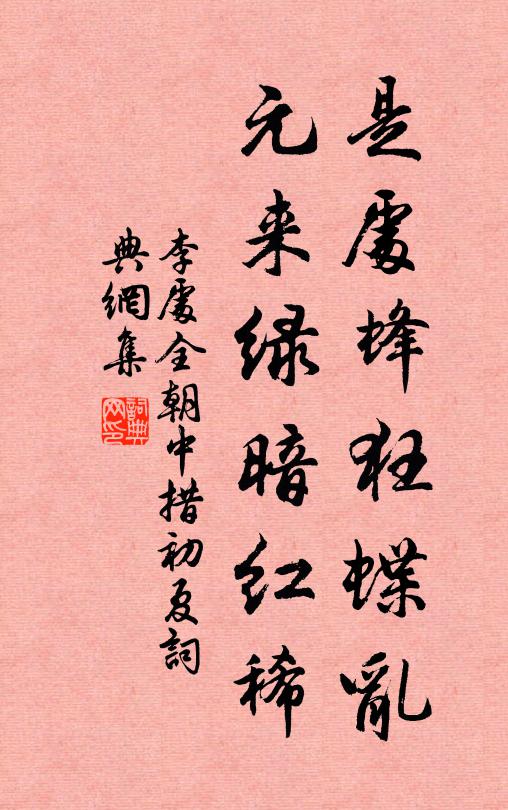 是處蜂狂蝶亂
元来绿暗红稀
李處全朝中措初夏詞
典網集
詞典網印